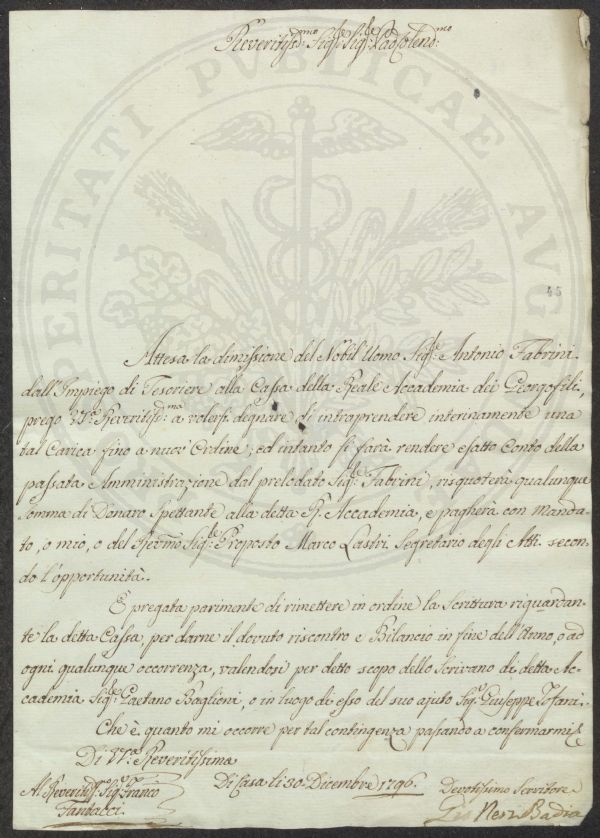 Reveritiss:mo Sig:re Sig:re Pad: Colend:mo
45
Attesa la dimissione del Nobil Uomo Sig:re Antonio Fabrini
dall'Impiego di Tesoriere alla Cassa della Reale Accademia dei Georgofili,
prego V.S. Reveritiss:ma a volersi degnare di intraprendere interinamente una
tal Carica fino a nuov'Ordine; ed intanto si farà rendere esatto Conto della
passata Amministrazione dal prelodato Sig:re Fabrini, risquoterà qualunque
somma di Denaro Spettante alla detta R: Accademia, e pagherà con manda-
to, o mio, o del Rev:mo Sig:re Proposto Marco Lastri Segretario degli Atti secon-
do l'opportunità.
È pregata parimente di rimettere in ordine la Scrittura riguardan-
te la detta Cassa, per darne il dovuto riscontro e Bilancio in fine dell'Anno, o ad
ogni qualunque occorrenza, valendosi per detto scopo dello Scrivano di detta Ac-
cademia Sig:re Gaetano Baglioni, o in luogo di esso del suo ajuto Sig:re Giuseppe Tofani.
Che è quanto mi occorre per tal contingenza passando a confermarmi
Di V.S. Reveritissima
Di Casa li 30. Dicembre 1796.
Al Reveritis: Sig:re Franco
Fantacci.
Devotissimo Servitore
Neri Badia
PROSPERITATI PUBLICAE AUGENDAE